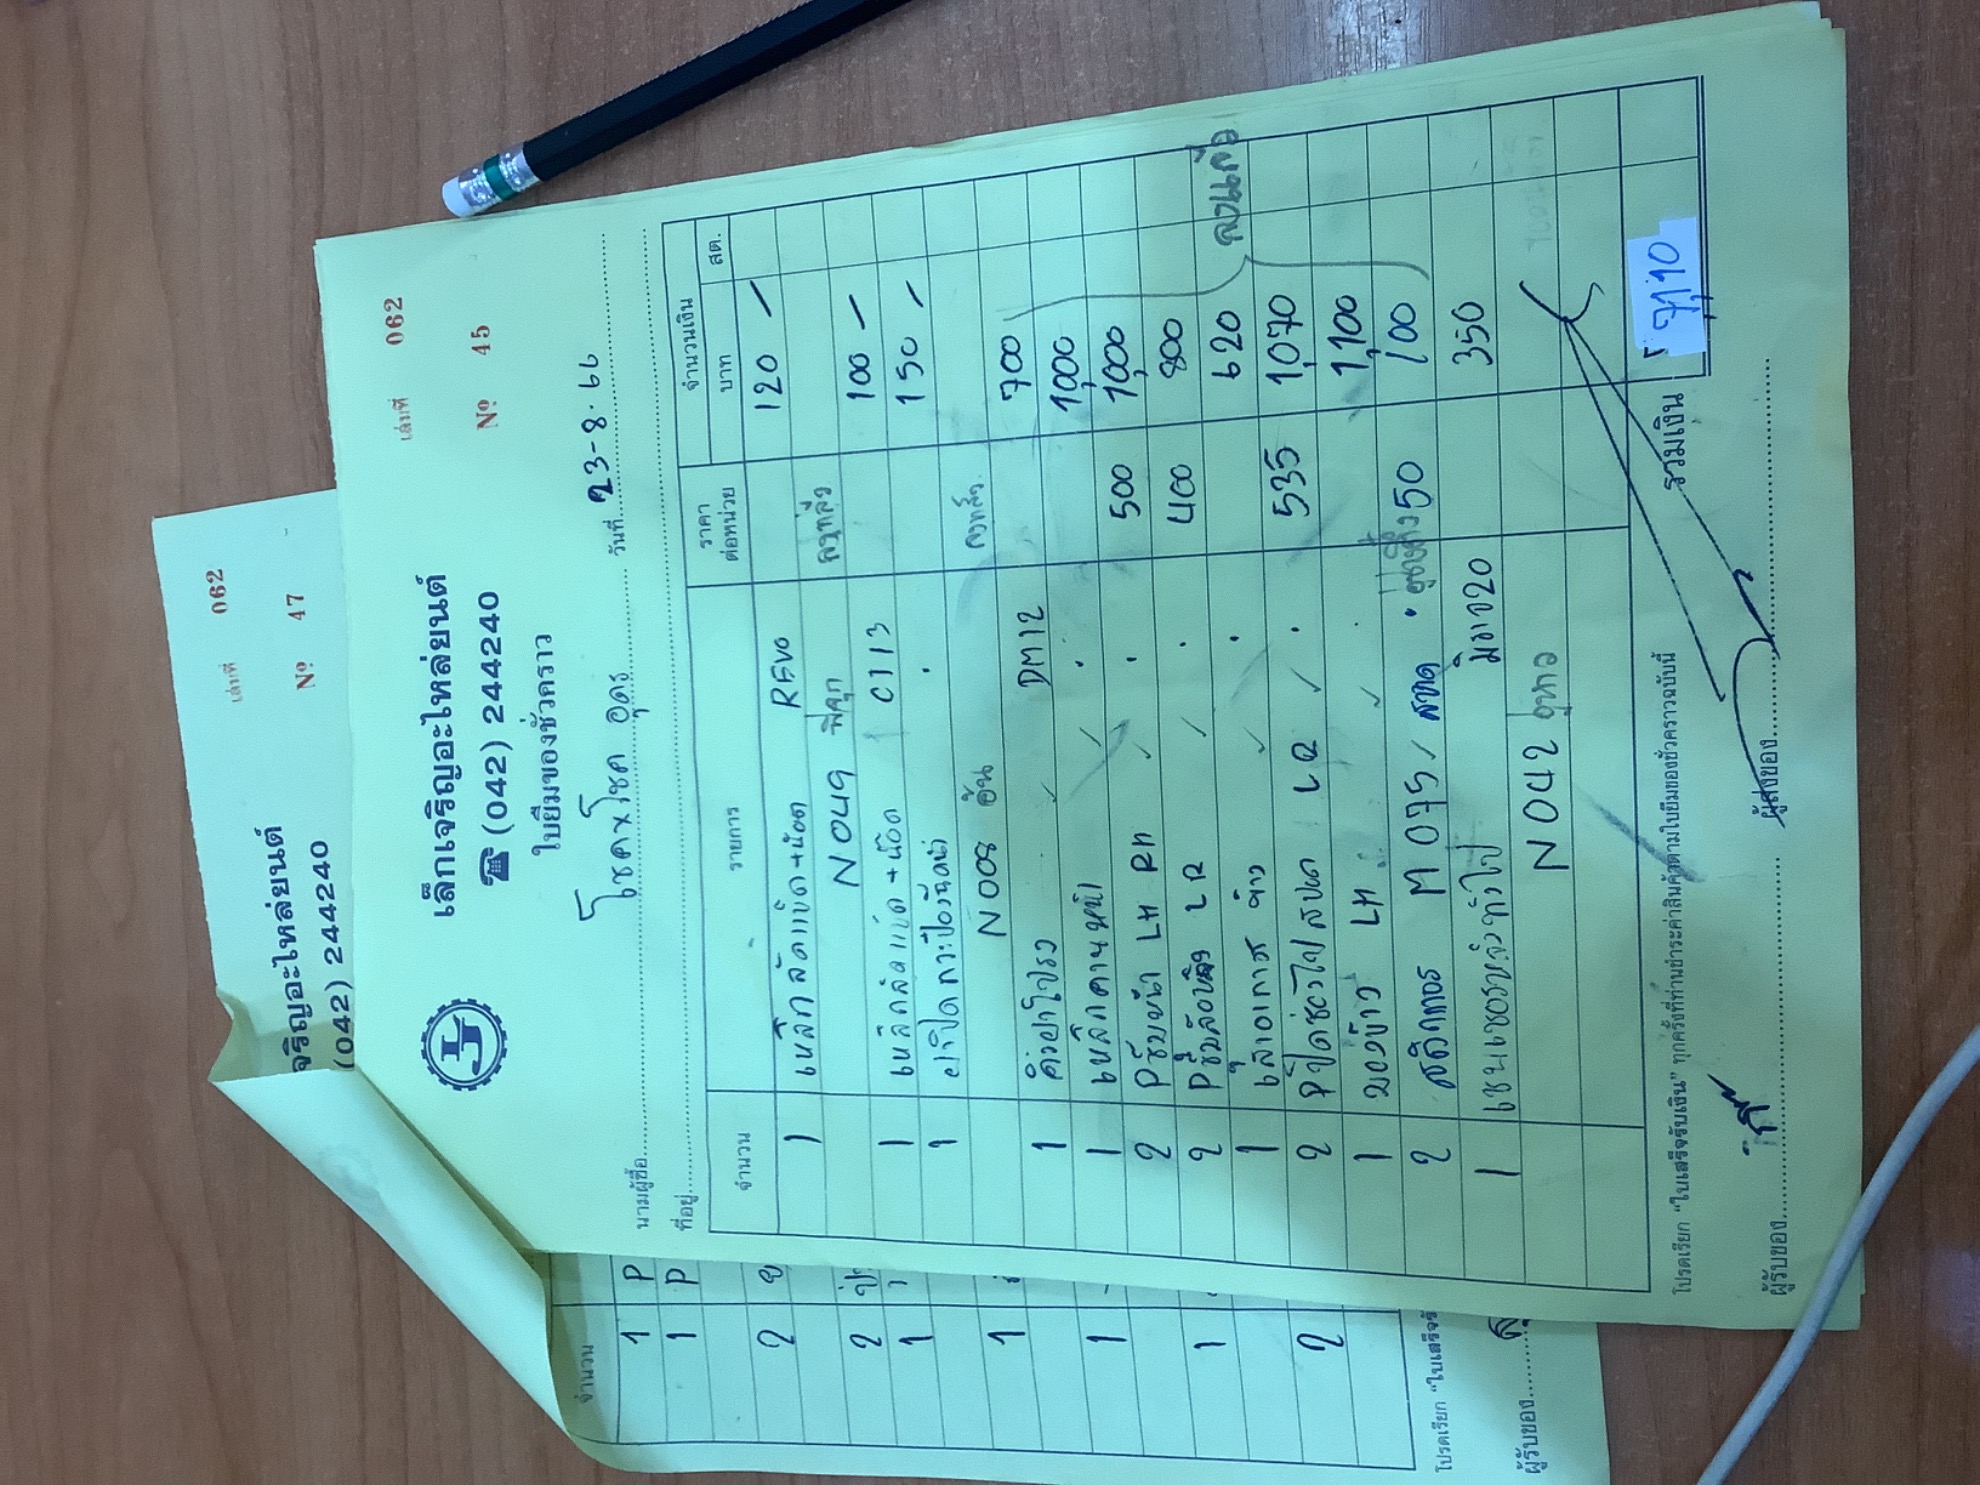 เล่มที่ 062
№ 47
จริญอะไหล่ยนต์
(042) 244240
เล่มที่ 062
№ 45
เล็กเจริญอะไหล่ยนต์
☎ (042) 244240
ใบยืมของชั่วคราว
วันที่ 23-8-66
นามผู้ซื้อ โชคคูโชค อุดร
ที่อยู่
จำนวน รายการ ราคาต่อหน่วย จำนวนเงิน บาท สต.
1 เหล็กลัดแบ็ต+น๊อต REVO 120 -
N049 ลงหลัง
1 เหล็กลัดแบ็ต+น๊อต C113 100 -
1 ฝาปิดกระป๋องฉีดน้ำ 150 -
N008 อ้น ลงหลัง
1 คิ้วฝาโปรง DM12 700
1 เหล็กคานหน้า 1,000
2 Pซุ้มหน้า LH RH 500 1,000
2 Pซุ้มหลัง LR 400 800
1 620
2 LR 535 1,070
1 มองข้าง LH 1,100
2 M 075 50 100
1 350
N042
ลงแก้ว
รวมเงิน 7,110
โปรดเรียก “ใบเสร็จรับเงิน” ทุกครั้งที่ท่านชำระค่าสินค้าตามใบยืมของชั่วคราวฉบับนี้
ผู้รับของ ผู้ส่งของ
จำนวน
1 P
1 P
2
2
1
1
1
1
2
โปรดเรียก “ใบเสร็จรั
ผู้รับของ